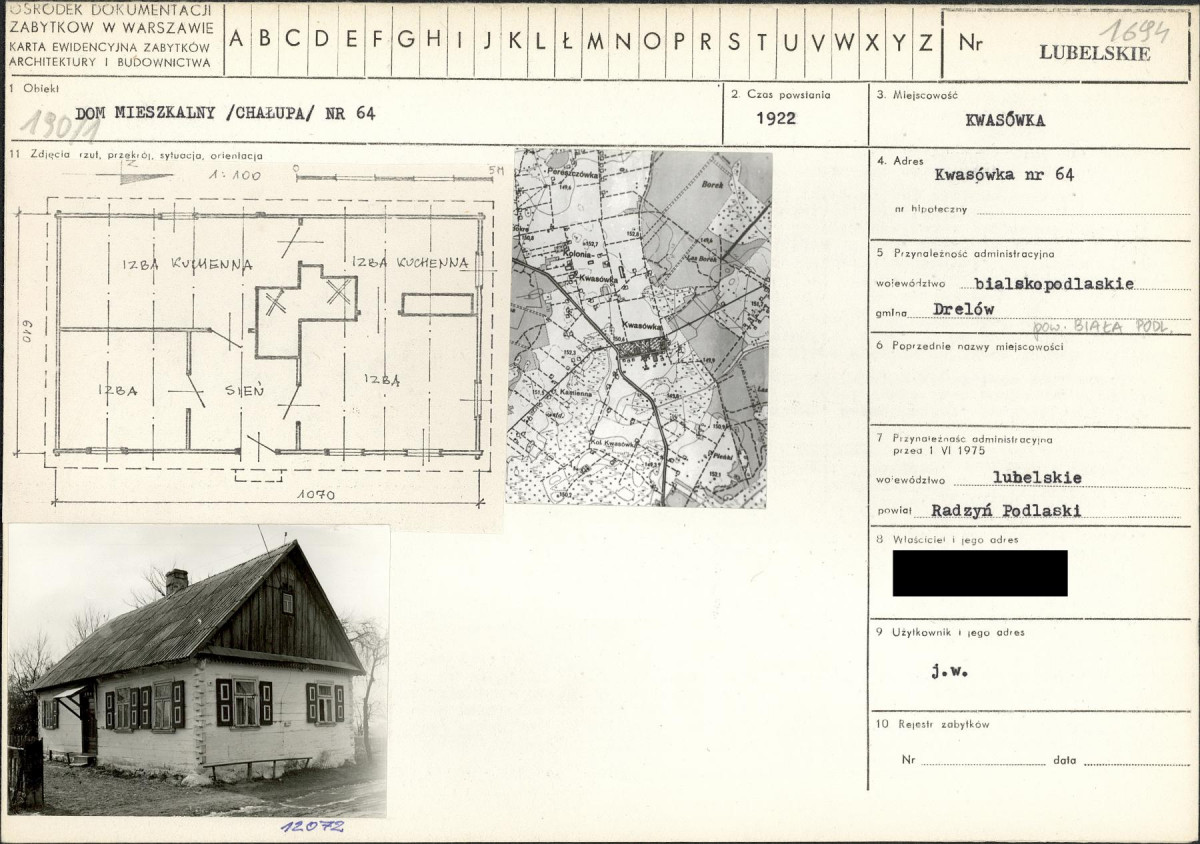 OŚRODEK DOKUMENTACJI
ZABYTKÓW W WARSZAWIE
KARTA EWIDENCYJNA ZABYTKÓW
ARCHITEKTURY I BUDOWNICTWA
A B C D E F G H I J K L Ł M N O P R S T U V W X Y Z
Nr
1694
LUBELSKIE
1 Obiekt
190/1
DOM MIESZKALNY /CHAŁUPA/ NR 64
2. Czas powstania
1922
3. Miejscowość
KWASÓWKA
11 Zdjęcia rzut, przekrój, sytuacja, orientacja
N
1:100
0
5M
IZBA KUCHENNA
IZBA KUCHENNA
610
IZBA
SIEŃ
IZBA
1070
Pereszczówka
149,6
Borek
150,8
152,7
152,8
149,6
Kolonia
Kwasówka
Las Borek
Kwasówka
150,6
152,3
149,9
Kamienna
151,5
Kol. Kwasówka
150,9
Pleski
149,3
152,1
150,2
4. Adres
Kwasówka nr 64
nr hipoteczny
5 Przynależność administracyjna
województwo bialskopodlaskie
gmina Drelów
pow. BIAŁA PODL.
6 Poprzednie nazwy miejscowości
7 Przynależność administracyjna
przed 1 VI 1975
województwo lubelskie
powiat Radzyń Podlaski
8 Właściciel i jego adres
9 Użytkownik i jego adres
j.w.
10 Rejestr zabytków
Nr data
12072